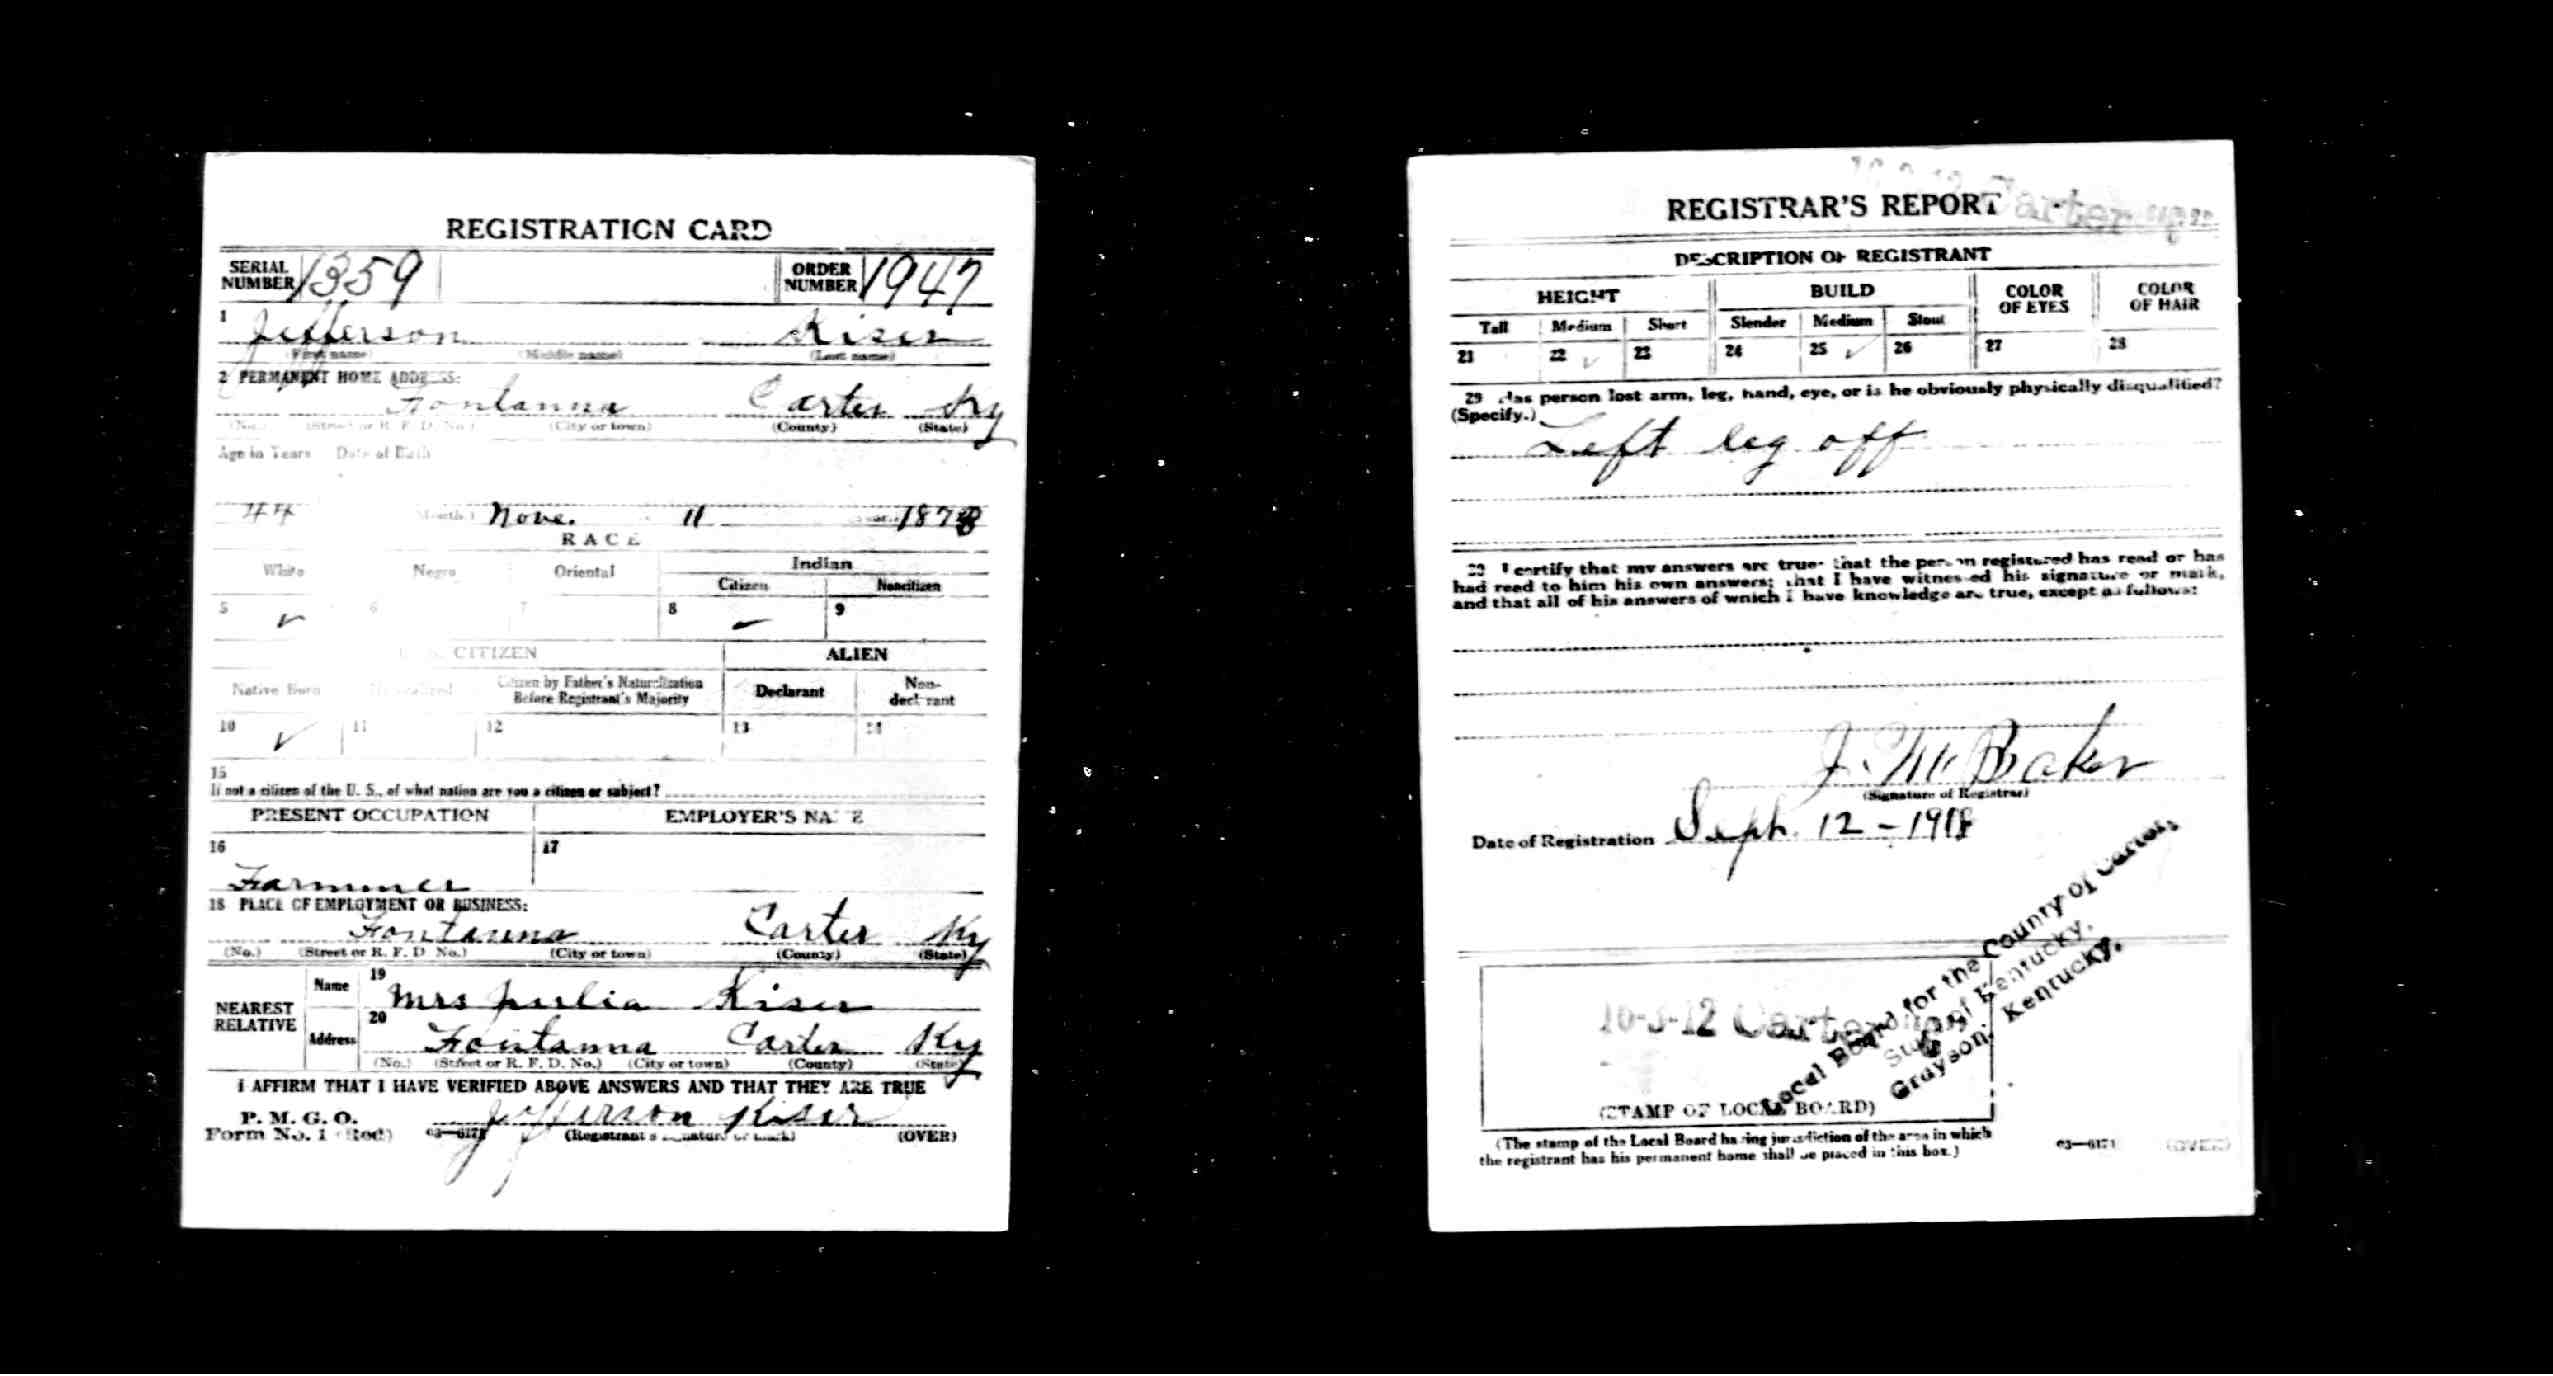 REGISTRATION CARD
SERIAL NUMBER 1359 ORDER NUMBER 1947
1 Jefferson Kiser
(First name) (Middle name) (Last name)
2 PERMANENT HOME ADDRESS:
Fontanna Carter Ky
(No.) (Street or R. F. D. No.) (City or town) (County) (State)
Age in Years Date of Birth
44 (Month.) Nove. 11 187
RACE
White Negro Oriental Indian
Citizen Noncitizen
5 ✓ 6 7 8 9
CITIZEN ALIEN
Native Born Naturalized Citizen by Father's Naturalization Before Registrant's Majority Declarant Non-declarant
10 ✓ 11 12 13 14
15
If not a citizen of the U. S., of what nation are you a citizen or subject?
PRESENT OCCUPATION EMPLOYER'S NAME
16 17
Farmmer
18 PLACE OF EMPLOYMENT OR BUSINESS:
Fontanna Carter Ky
(No.) (Street or R. F. D. No.) (City or town) (County) (State)
NEAREST RELATIVE Name 19 Mrs Julia Kiser
Address 20 Fontanna Carter Ky
(No.) (Street or R. F. D. No.) (City or town) (County) (State)
I AFFIRM THAT I HAVE VERIFIED ABOVE ANSWERS AND THAT THEY ARE TRUE
P. M. G. O.
Form No. 1 (Red) 03—6171 Jefferson Kiser
(Registrant's signature or mark) (OVER)
REGISTRAR'S REPORT
DESCRIPTION OF REGISTRANT
HEIGHT BUILD COLOR OF EYES COLOR OF HAIR
Tall Medium Short Slender Medium Stout
21 22 ✓ 23 24 25 ✓ 26 27 28
29 Has person lost arm, leg, hand, eye, or is he obviously physically disqualified?
(Specify.)
Left leg off
30 I certify that my answers are true; that the person registered has read or has
had read to him his own answers; that I have witnessed his signature or mark,
and that all of his answers of which I have knowledge are true, except as follows:
Baker
(Signature of Registrar)
Date of Registration Seph. 12 - 1918
10-3-12 Carter
Local Board for the County of Carter,
State of Kentucky,
Grayson, Kentucky.
(STAMP OF LOCAL BOARD)
(The stamp of the Local Board having jurisdiction of the area in which
the registrant has his permanent home shall be placed in this box.)
03—6171 (OVER)